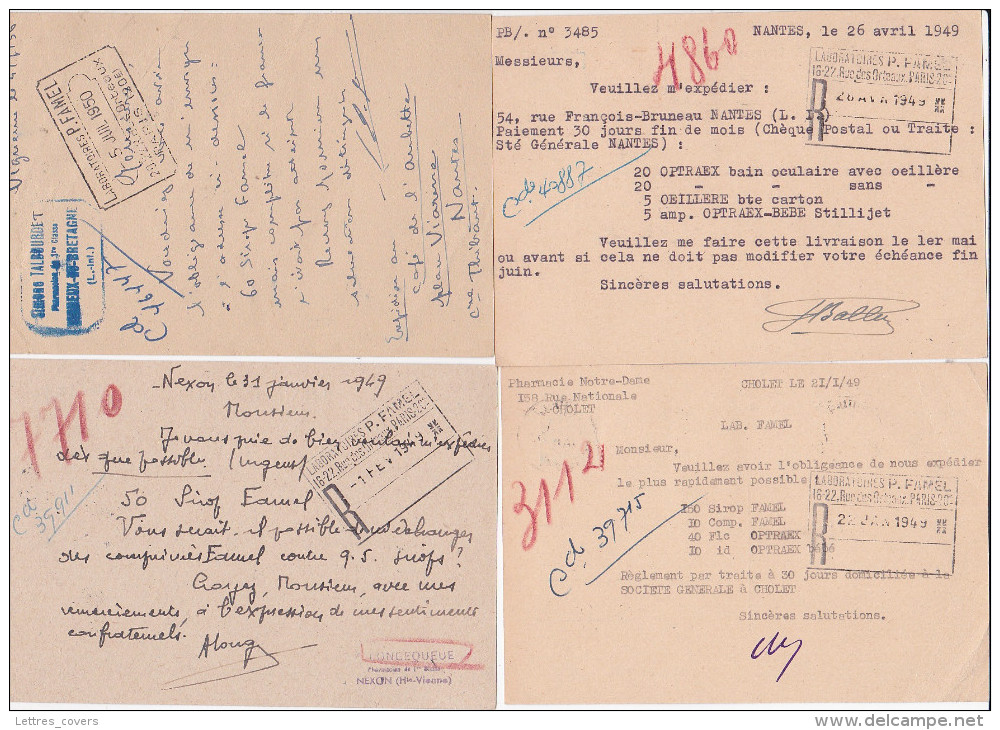 5 JUIL 1950
LABORATOIRES P. FAMEL
SIMONO TALBOURDET
Pharmacien de 1re Classe
-DE-BRETAGNE
(L.-Inf.)
Cde 46447
Voudriez
l'obligeance de m'envoyer
à l'adresse ci dessous :
60 Sirop Famel
mais complétés si le franco
n'était pas atteint
Recevez Monsieur mes
salutations distinguées
Expédition au
café de l'
place Viarme
Nantes
chez Thibault
PB/. n° 3485
NANTES, le 26 avril 1949
4860
Messieurs,
LABORATOIRES P. FAMEL
16-22, Rue des Orteaux. PARIS-20e
26 AVR 1949
R
Veuillez m'expédier :
54, rue François-Bruneau NANTES (L. I
Paiement 30 jours fin de mois (Chèque Postal ou Traite :
Sté Générale NANTES) :
Cde 40887
20 OPTRAEX bain oculaire avec oeillère
20 - - sans -
5 OEILLERE bte carton
5 amp. OPTRAEX-BEBE Stillijet
Veuillez me faire cette livraison le 1er mai
ou avant si cela ne doit pas modifier votre échéance fin
juin.
Sincères salutations.
Nexon le 31 janvier 1949
1710
Monsieur,
LABORATOIRES P. FAMEL
16-22, Rue des Orteaux. PARIS-20e
-1 FEV 1949
R
Je vous prie de bien vouloir m'expédier
dès que possible (Urgent)
Cde 39911
50 Sirop Famel
Vous serait-il possible de m'échanger
des comprimés Famel contre q.s. sirops ?
Croyez, Monsieur, avec mes
remerciements, à l'expression de mes sentiments
confraternels.
LONGEQUEUE
NEXON (Hte-Vienne)
Pharmacie Notre-Dame
158, Rue Nationale
CHOLET
CHOLET LE 21/I/49
LAB. FAMEL
3112
Monsieur,
Veuillez avoir l'obligeance de nous expédier
le plus rapidement possible
LABORATOIRES P. FAMEL
16-22, Rue des Orteaux. PARIS-20e
22 JAN 1949
R
Cde 39715
150 Sirop FAMEL
10 Comp. FAMEL
40 Flc OPTRAEX
10 id OPTRAEX bébé
Règlement par traite à 30 jours domiciliée à la
SOCIETE GENERALE à CHOLET
Sincères salutations.
Lettres_covers
delcampe.net